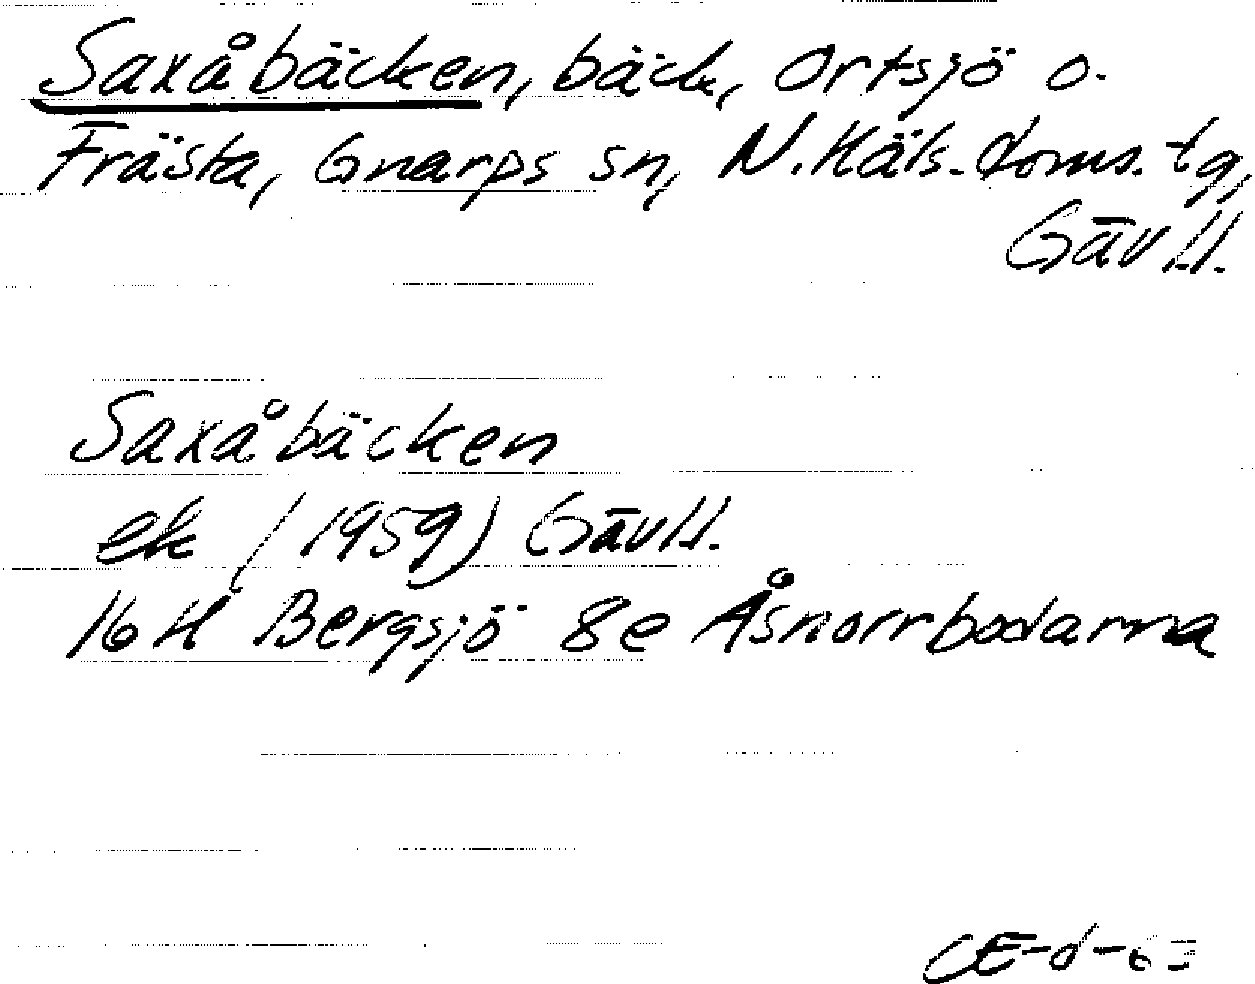 Saxåbäcken, bäck, Ortsjö o.
Frästa, Gnarps sn, N. Häls. doms. tg,
Gävl.l.
Saxåbäcken
ek (1959) Gävl.l.
16 H Bergsjö 8e Åsnorrbodarna
CE-d-63